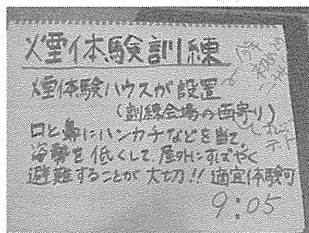 煙体験訓練
煙体験ハウスが設置
(訓練会場の西寄り)
口と鼻にハンカチなどを当て
姿勢を低くして、屋外にすばやく
避難することが大切!! 適宜体験可
9:05